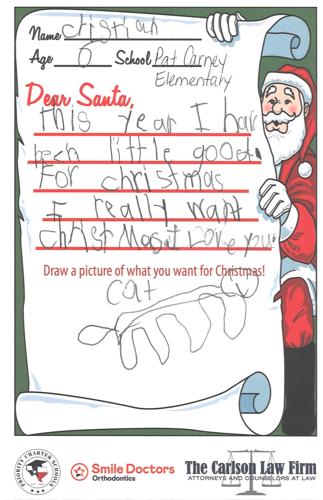 Name
Age 6 School Pat Carney
Elementary
Dear Santa,
this year I hav
been little good.
For christmas
I really want
christmas I Love you.
Draw a picture of what you want for Christmas!
cat
PRIORITY CHARTER SCHOOLS
Smile Doctors
Orthodontics
The Carlson Law Firm
ATTORNEYS AND COUNSELORS AT LAW